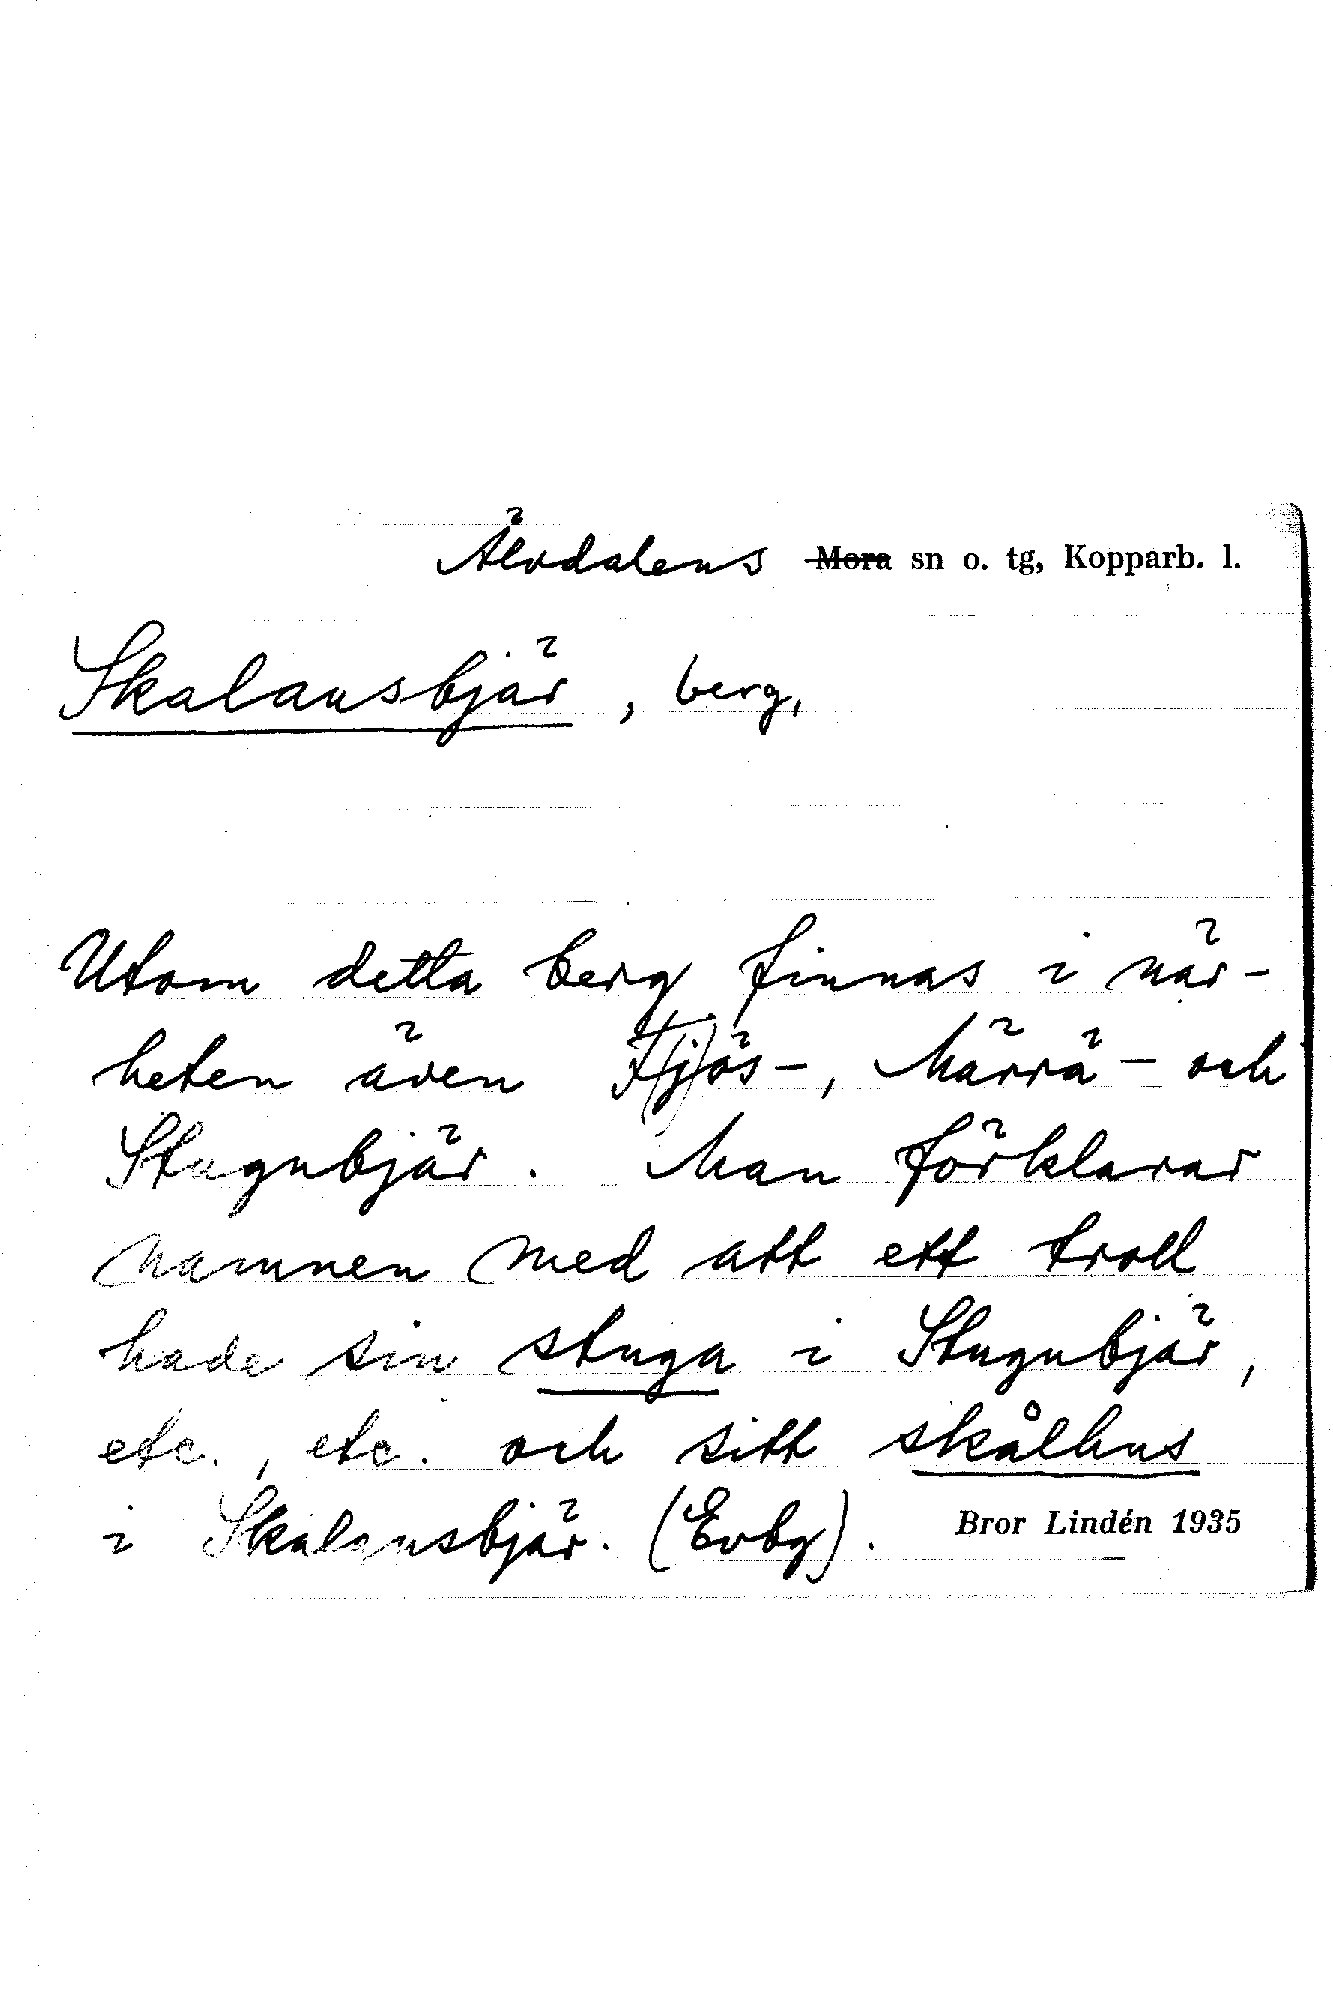 Älvdalens Mora sn o. tg, Kopparb. l.
Skalansbjär, berg,
Utom detta berg finnas i när-
heten även F(j)ös-, Märrä- och
Stugubjär. Man förklarar
namnen med att ett troll
hade sin stuga i Stugubjär,
etc., etc. och sitt skålhus
i Skalansbjär. (Evbg).
Bror Lindén 1935